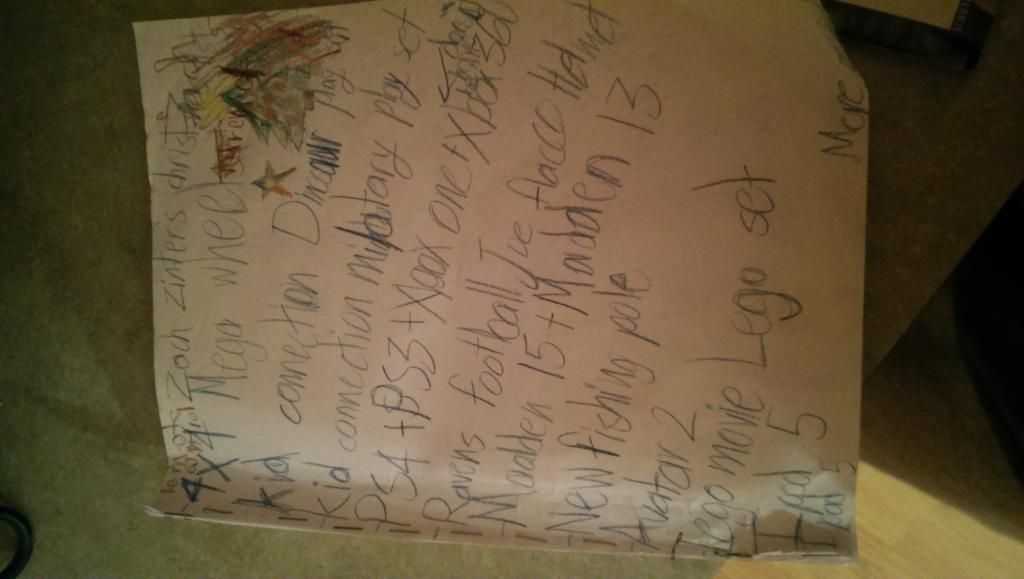 Zach zinters christ
4X4 Mega wheel
Kid connection Dincaur play
Kid connection military play set
PS4 + PS3 + Xbox one + Xbox 360
Ravens football Joe flacco
Madden 15 + Madden 13
New fishing pole
Avatar 2
Lego movie Lego set
I Pad 5
I Pad 5
More